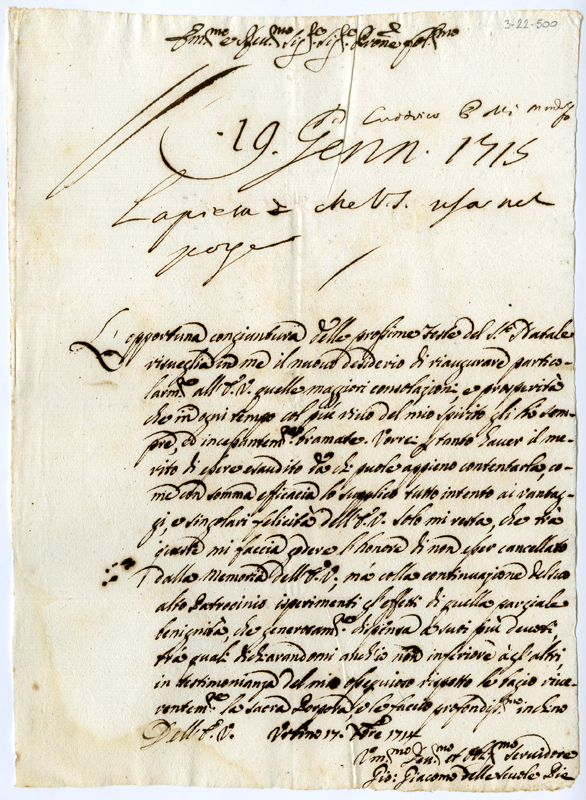 3-22-500
Em.mo e Rev.mo Sig.re Sig.re Prone Col.mo
Ludovico
19. Genn. 1715
La pieta che V.S. usa nel
porge
L'opportuna congiuntura delle prossime Feste del S.to Natale
risueglia in me il nuouo desiderio di riaugurare partico-
larm.te all'E.V. quelle maggiori consolazioni, e prosperità
che in ogni tempo col più viuo del mio spirito gli hò sem-
pre, ed incessantem.te bramate. Vorrei p tanto hauer il me-
rito di essere esaudito da chi puole appieno contentarla, co-
me con somma efficacia lo supplico tutto intento ai vantag-
gi, e singolari felicità dell'E.V. Solo mi resta, che trà
queste mi faccia godere l'honore di non esser cancellato
dalla Memoria dell'E.V., mà colla continuazione del suo
alto Patrocinio isperimenti gl'effetti di quella parziale
benignità, che generosam.te dispensa à suoi più deuoti,
trà quali dichiarandomi anch'io non inferiore à gl'altri,
in testimonianza del mio ossequioso rispetto le bacio riue-
rentem.te la Sacra Porpora, e le faccio profondiss.mo inchino
Dell'E.V. Urbino 17. Xbre 1714
Um.mo Deu.mo et Obl.mo Seruidore
Gio: Giacomo delle Scuole Pie